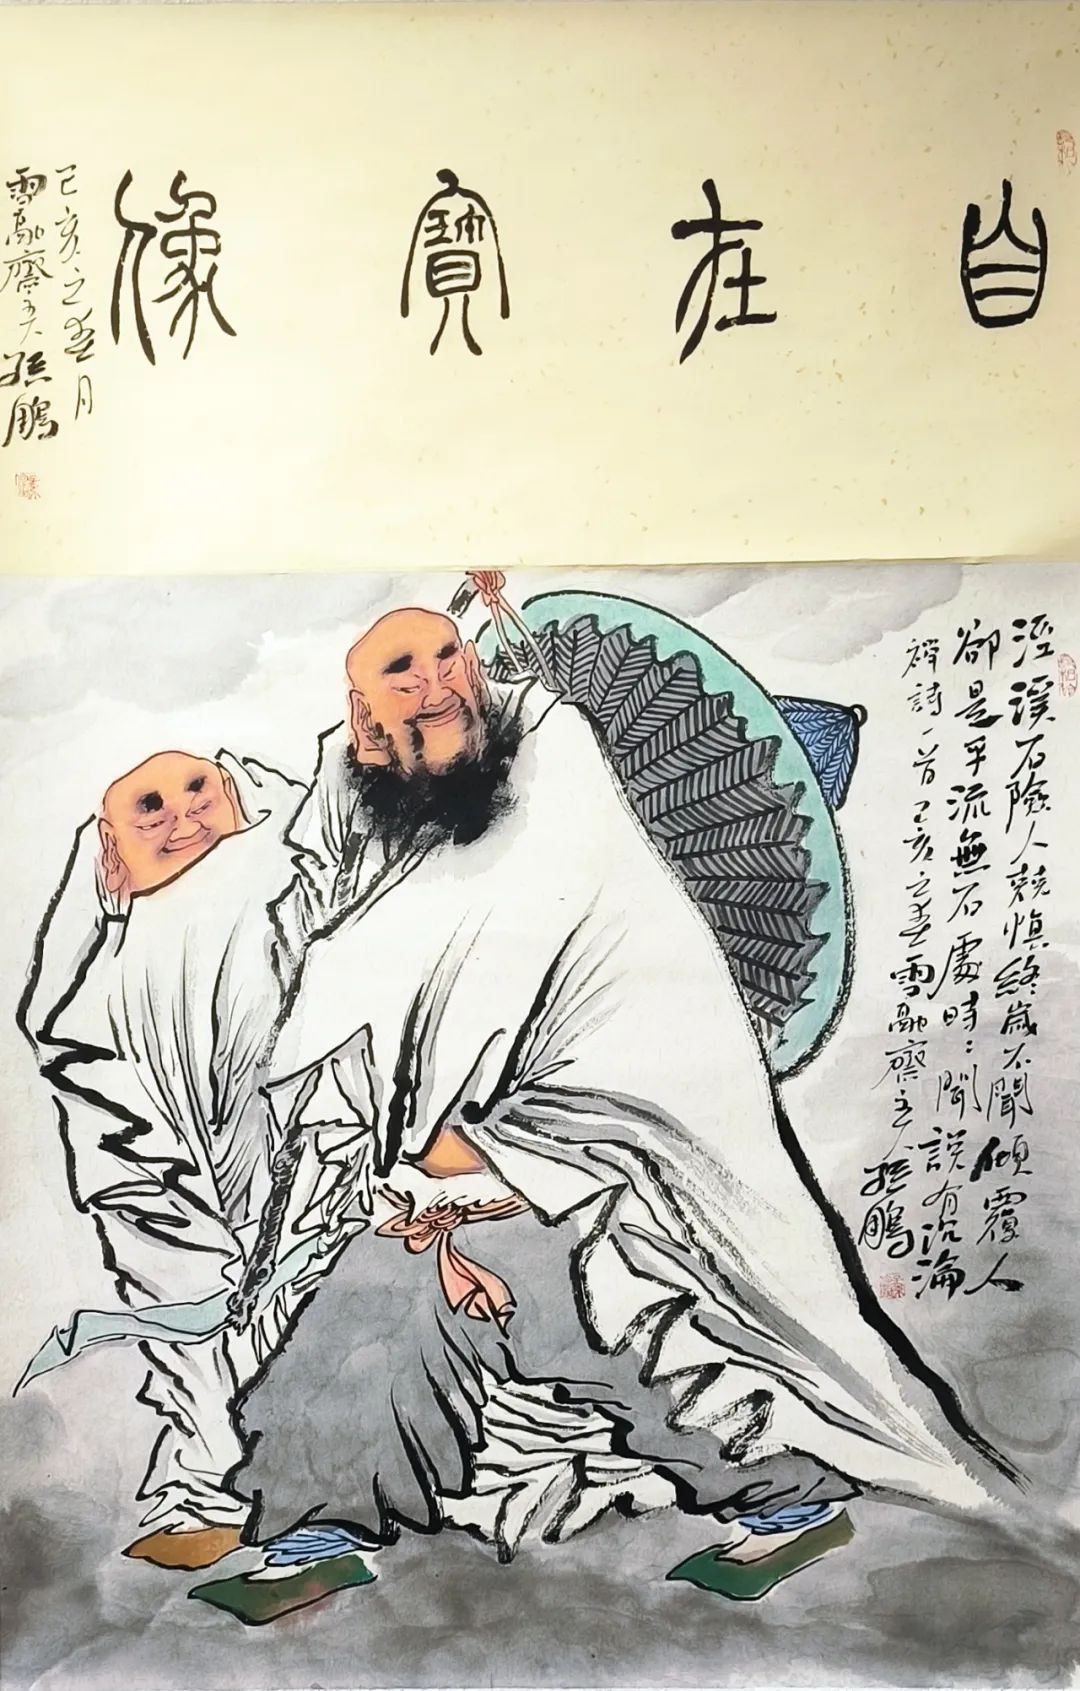 自在寶像
己亥之春月
雪融齋主人孫鵬
泾溪石險人兢慎終歲不聞傾覆人
卻是平流無石處時〻聞說有沉淪
禪詩一首己亥之春雪融齋主人孫鵬